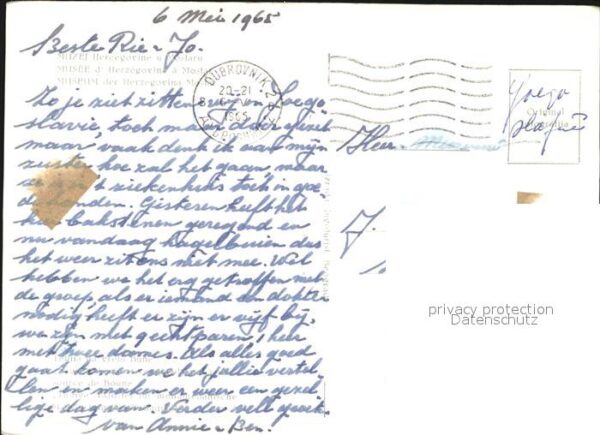 6 Mei 1965
Beste Rie - Jo.
MUZEJ Hercegovine u Mostaru
MUSÉE d' Herzegovina à Mo
MUSEUM der Herzegovina M
Zo je ziet zitten we in Joego
slavie, toch maar alder
maar vaak denk ik aan mijn
zuster hoe zal het gaan, maar
ziekenhuis toch in goe
de handen. Gisteren heeft het
hier bakstenen geregend en
nu vandaag hagelbuien dus
het weer zit ons niet mee. Wel
hebben we het erg getroffen met
de groep, als er iemand een dokter
nodig heeft er zijn er vijf bij,
we zijn met echtparen, 1 heer
met twee dames. Als alles goed
gaat komen we het jullie vertel
len en maken er weer een gezel
lige dag van. Verder veel
van Annie - Ben.
DUBROVNIK 2
20-21
1965
Heer
Joego
slavië
Original
privacy protection
Datenschutz